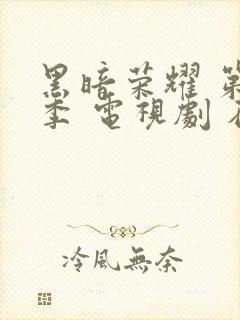 黑暗荣耀 第
季 電視劇
冷風無奈